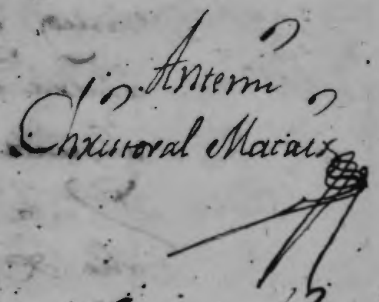 Antemi
Chxistoval Mataix